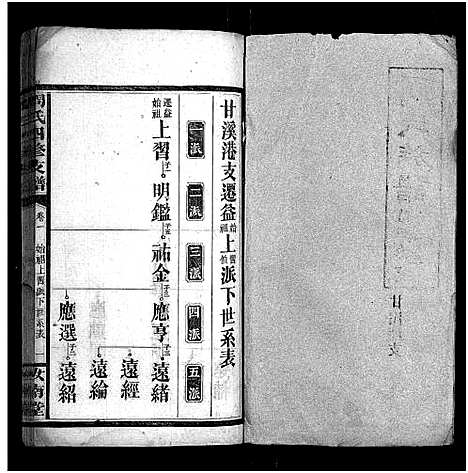 甘溪港支遷益始祖上習派下世系表
一派
二派
三派
四派
五派
遷益始祖上習子一明鑑子一祐金子二應亨子三遠緒
遠經
遠綸
應選子一遠紹
周氏四修支譜
卷一
始祖上習派下世系表
一
汝南堂
甘
支